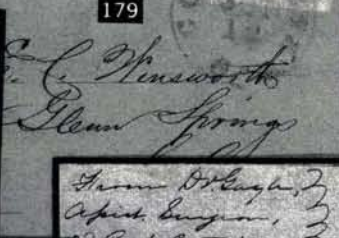 179
E. C. Winsworth
Glenn Springs
From Dr. Gayle,
Apist. Surgeon,